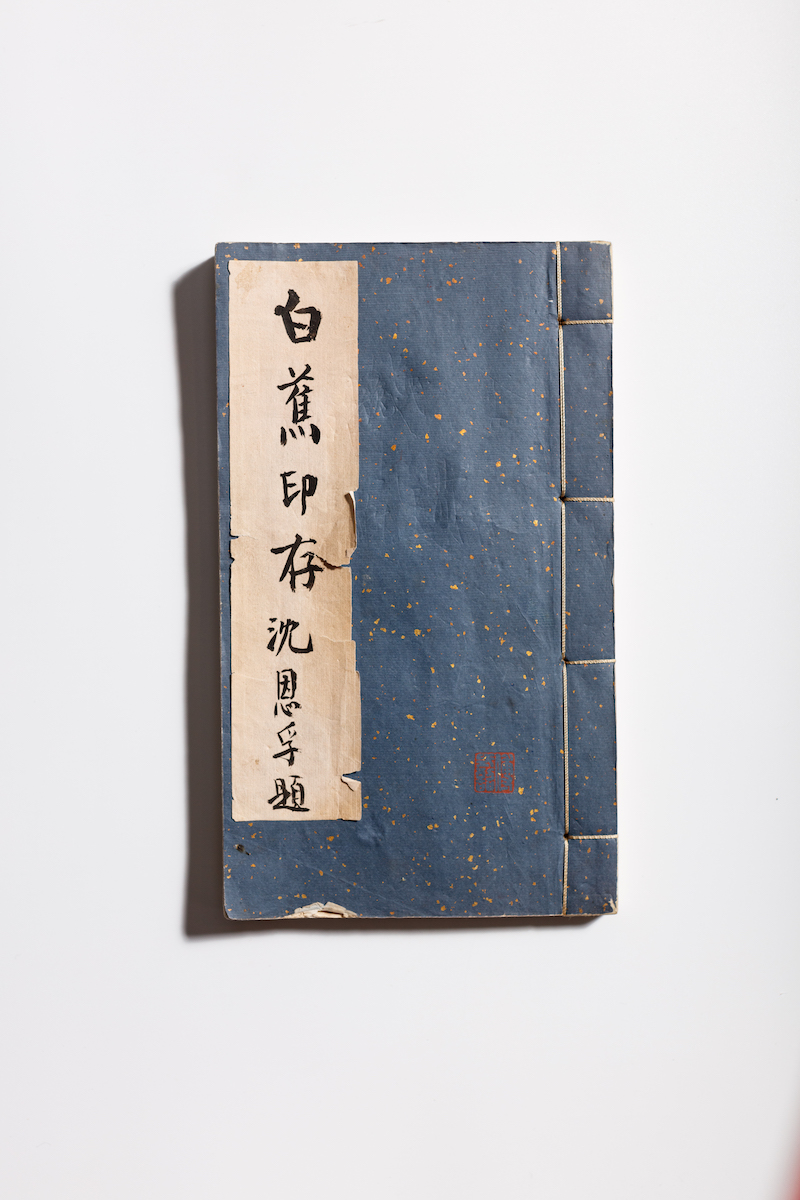 白蕉印存沈恩孚題